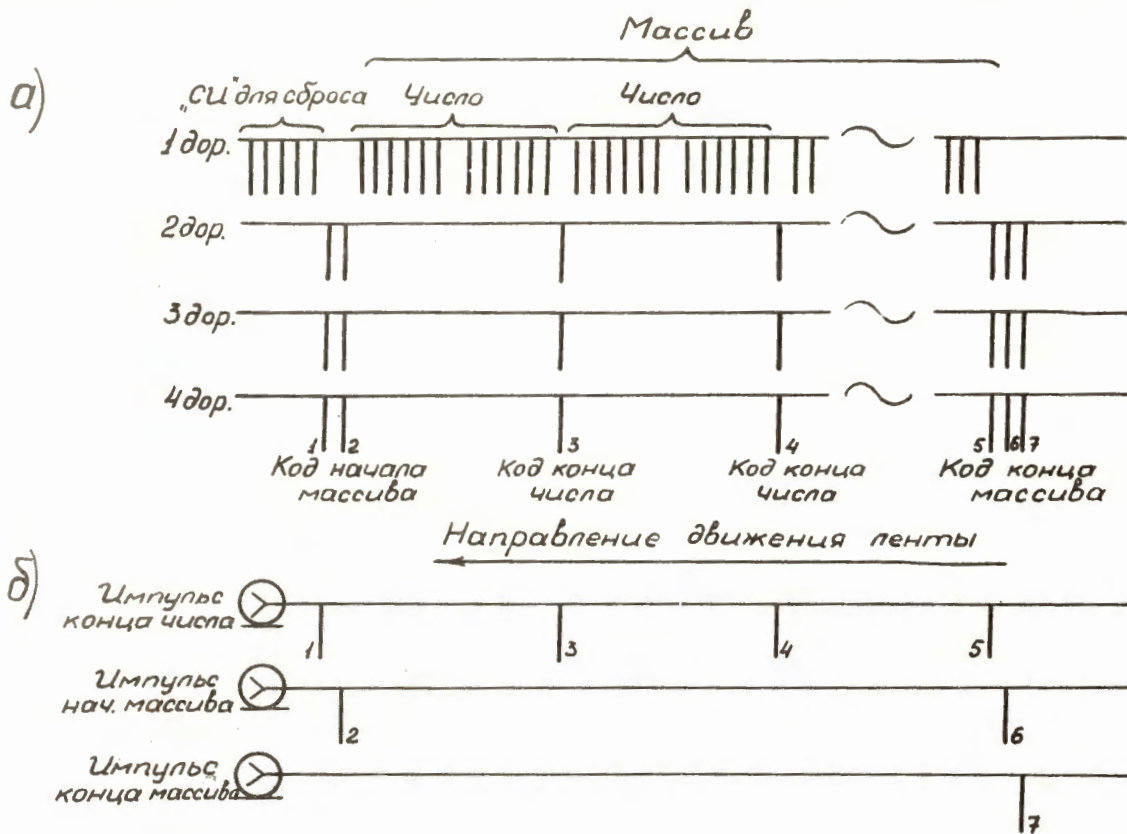 Массив
а)
„СИ" для сброса
Число
Число
1 дор.
2 дор.
3 дор.
4 дор.
1 2 3 4 5 6 7
Код начала
массива
Код конца
числа
Код конца
числа
Код конца
массива
Направление движения ленты
б)
Импульс
конца числа
1 3 4 5
Импульс
нач. массива
2 6
Импульс
конца массива
7